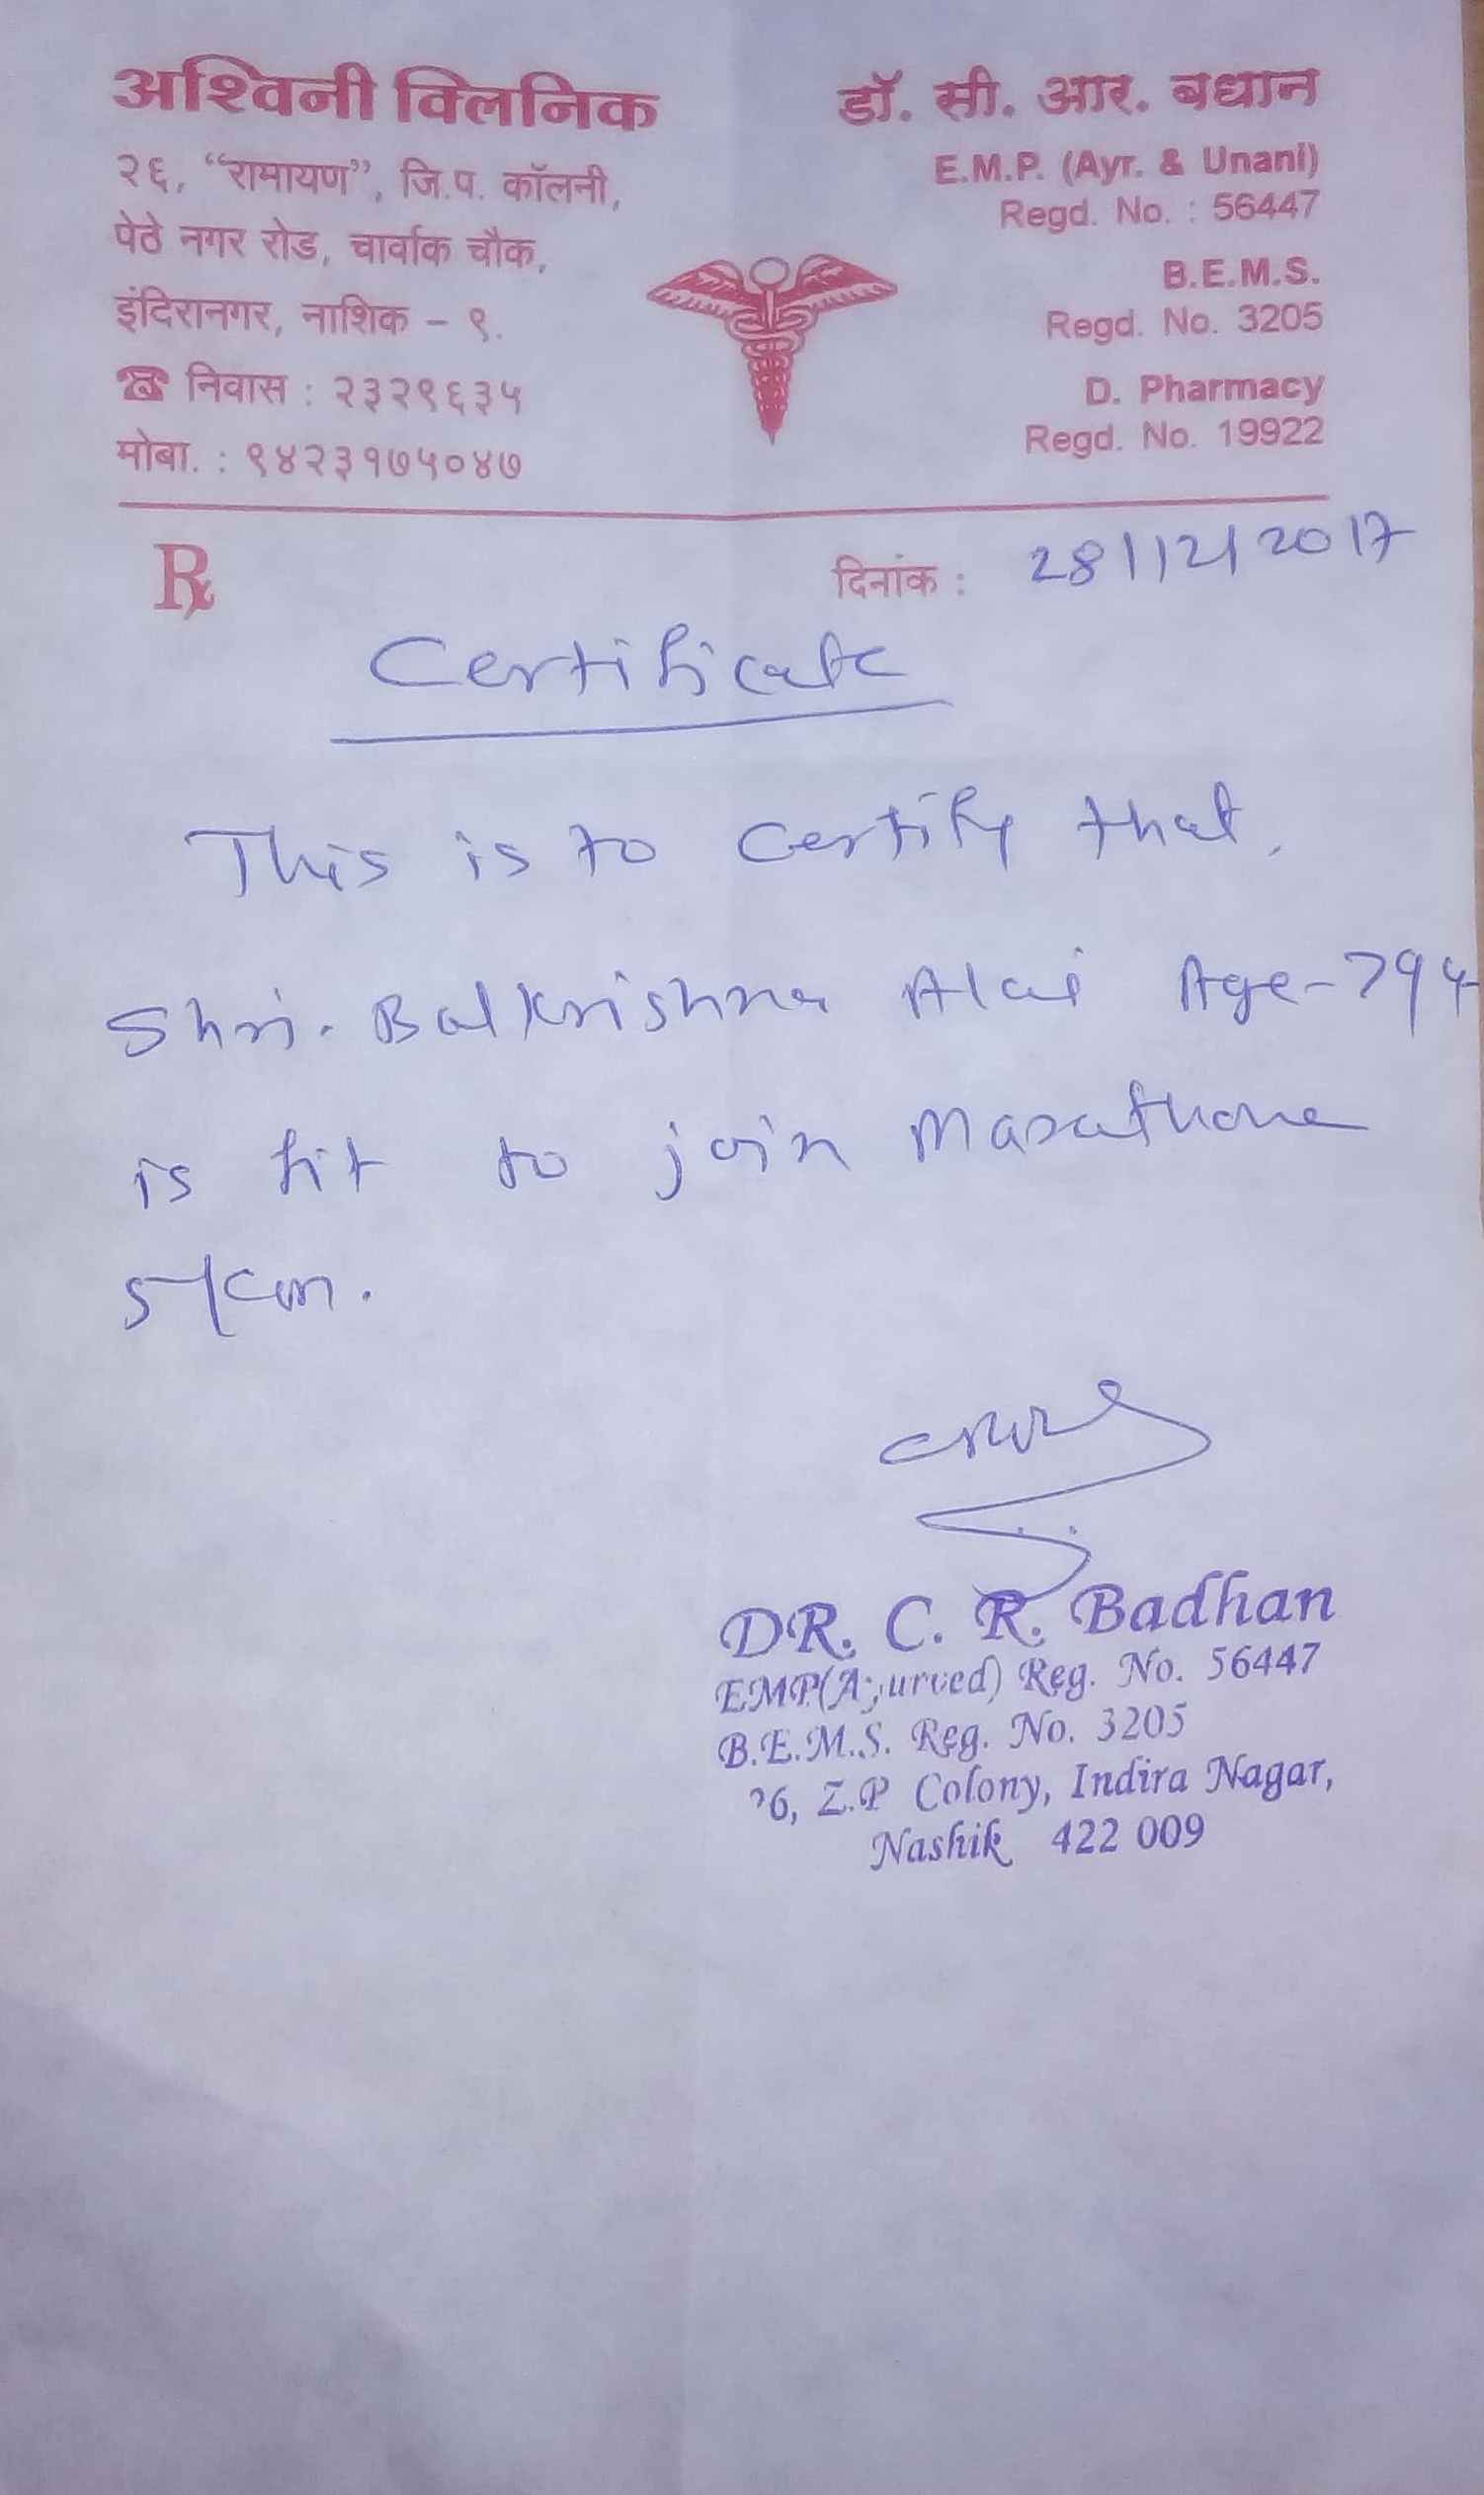 अश्विनी क्लिनिक
२६, “रामायण”, जि.प. कॉलनी,
पेठे नगर रोड, चार्वाक चौक,
इंदिरानगर, नाशिक – ९.
☎ निवास : २३२९६३५
मोबा. : ९४२३१७५०४७
डॉ. सी. आर. बधान
E.M.P. (Ayr. & Unani)
Regd. No. : 56447
B.E.M.S.
Regd. No. 3205
D. Pharmacy
Regd. No. 19922
℞
दिनांक : 28/12/2017
Certificate
This is to certify that,
Shri. Balkrishna Alai Age-79y
is fit to join Marathone
5 km.
DR. C. R. Badhan
EMP(Ayurved) Reg. No. 56447
B.E.M.S. Reg. No. 3205
26, Z.P Colony, Indira Nagar,
Nashik 422 009